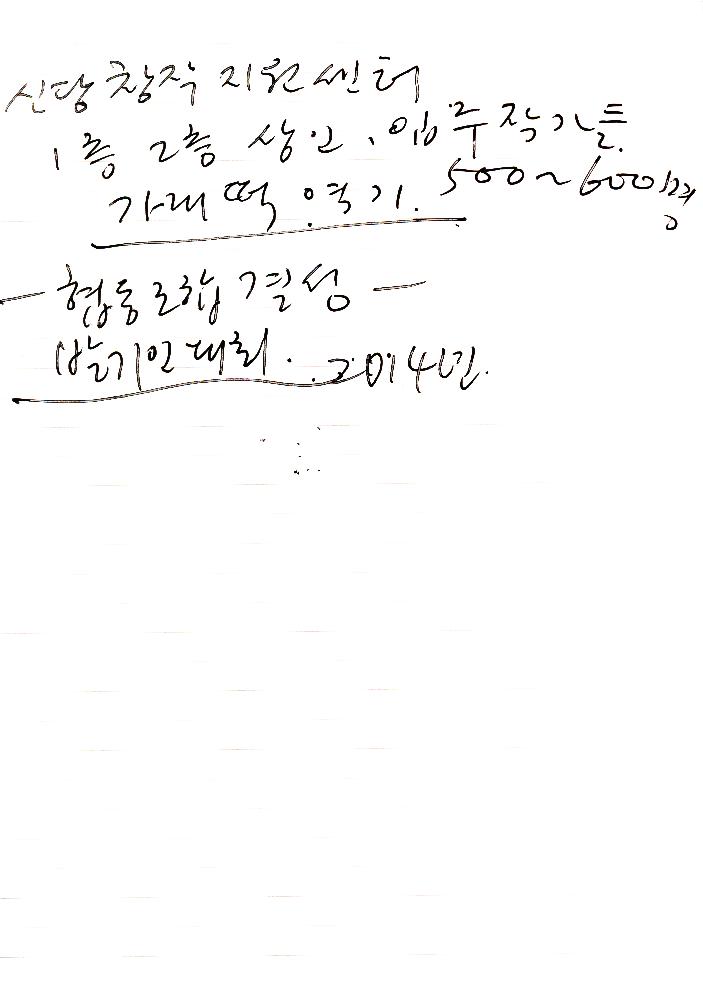 신당창작지원센터
1층 2층 상인, 입주작가들
가래떡 엮기. 500~600명
- 협동조합 결성 -
발기인대회. 2014년.